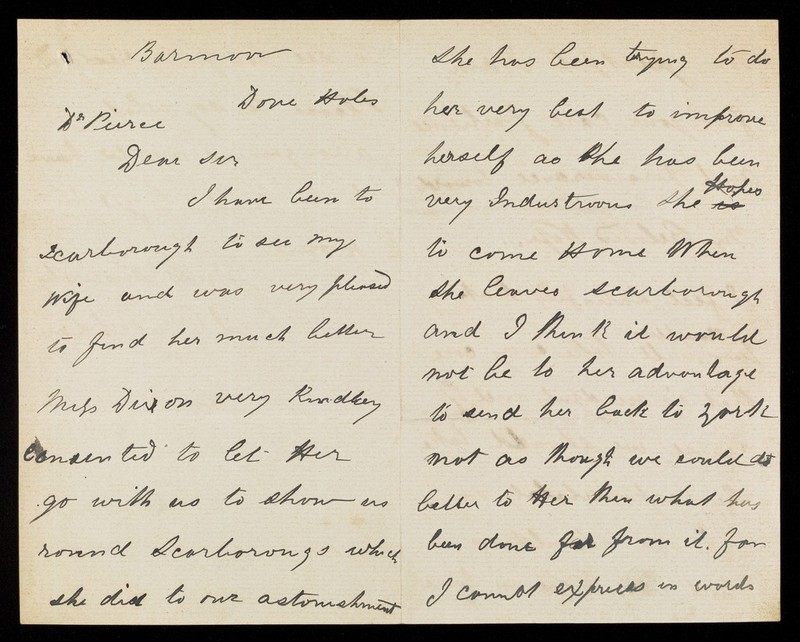 Barmoor
Dove Holes
Dr Pierce
Dear Sir
I have been to
Scarborough to see my
Wife and was very pleased
to find her much better
Miss Dixon very Kindley
Consented to let Her
go with us to show us
round Scarborough which
she did to our astonishment
she has been trying to do
her very best to improve
herself as She has been
very Industrous She is Hopes
to come Home When
She leaves Scarborough
and I think it would
not be to her advantage
to send her back to York
not as though we could do
better to Her then what has
been done far from it. for
I cannot express in words